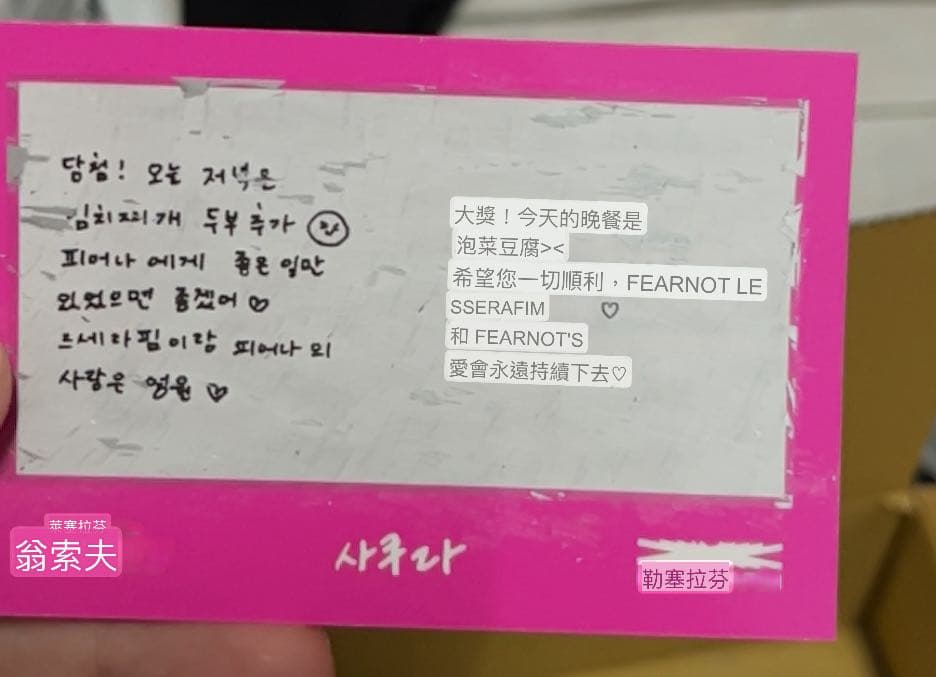 당첨! 오늘 저녁은
김치찌개 두부추가
피어나에게 좋은 일만
있었으면 좋겠어♡
르세라핌이랑 피어나의
사랑은 영원♡
大獎！今天的晚餐是
泡菜豆腐><
希望您一切順利，FEARNOT LE
SSERAFIM
和 FEARNOT'S
愛會永遠持續下去♡
萊塞拉芬
翁索夫
사쿠라
勒塞拉芬